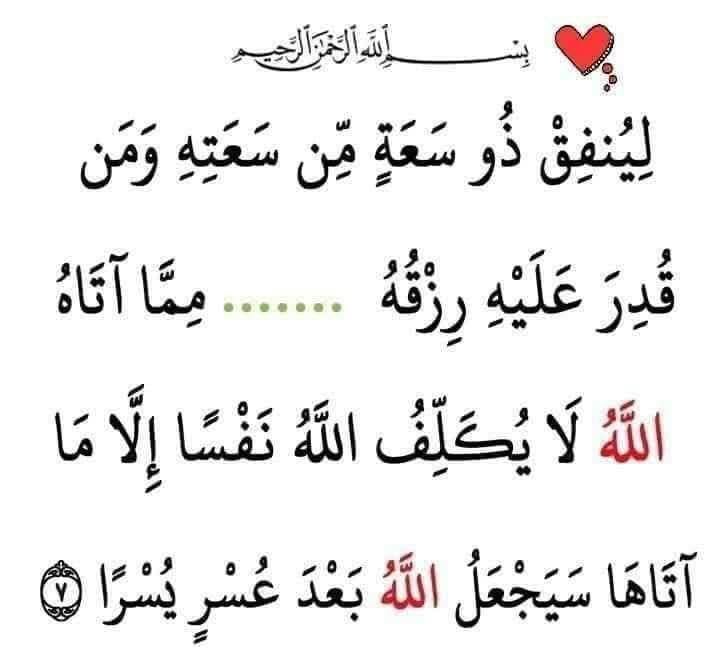 بِسْمِ اللَّهِ الرَّحْمَٰنِ الرَّحِيمِ
لِيُنفِقْ ذُو سَعَةٍ مِّن سَعَتِهِ وَمَن
قُدِرَ عَلَيْهِ رِزْقُهُ ....... مِمَّا آتَاهُ
اللَّهُ لَا يُكَلِّفُ اللَّهُ نَفْسًا إِلَّا مَا
آتَاهَا سَيَجْعَلُ اللَّهُ بَعْدَ عُسْرٍ يُسْرًا ٧